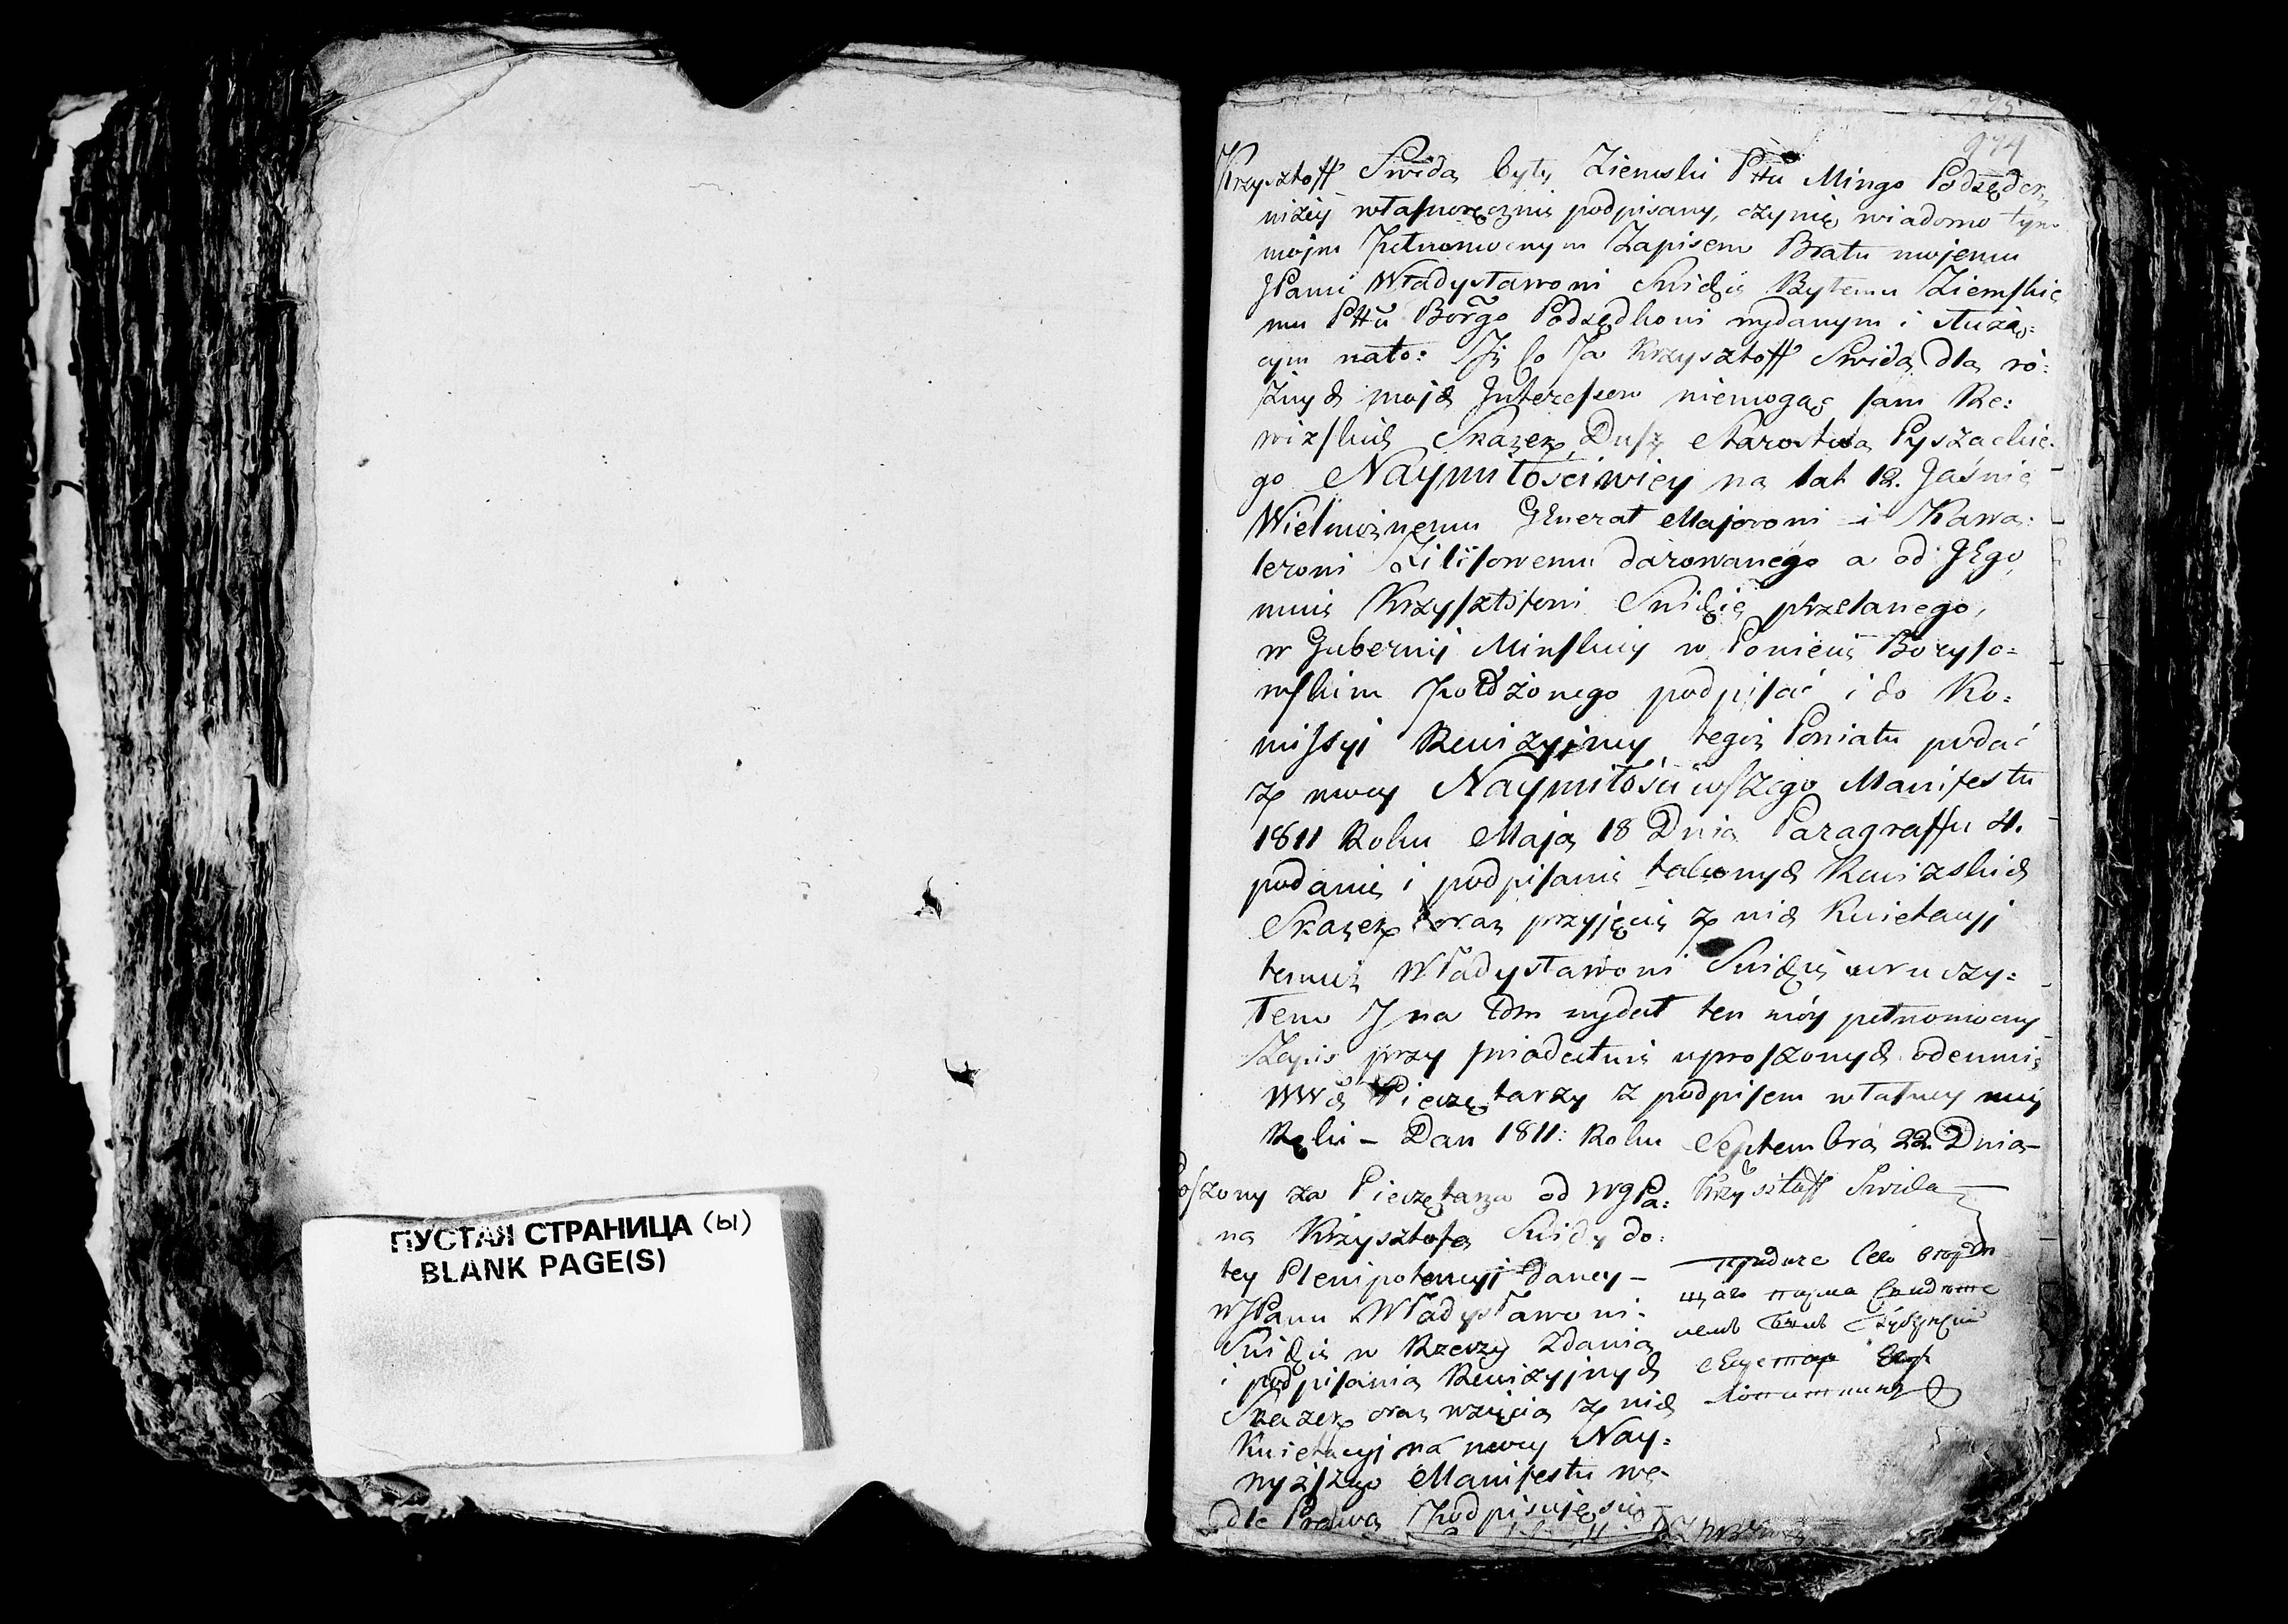 ПУСТАЯ СТРАНИЦА (ы)
BLANK PAGE(S)
974
Krzysztoff Swida były Ziemski Pttu Mingo Podsędek
niżey własnoręcznie podpisany, czynię wiadomo tym
moim Pełnomocnym Zapisem Bratu mojemu
JPanu Władysławowi Swidzie Bytemu Ziemskie
mu Pttu Borgo Podsędkowi wydanym i służą=
cym nato: Iż Co Ja Krzysztoff Swida dla ró=
żnych moich Interessow niemogąc sam Re=
wizskich Skazek Dusz Starostwa Pyszackie=
go Naymiłościwiey na lat 12. Jaśnie
Wielmożnemu Generał Majorowi i Kawa=
lerowi darowanego a od JEgo
mnie Krzysztofowi Swidzie przelanego,
w Gubernij Minskiey w Powiecie Boryso=
wskim Położonego podpisać i do Ko=
missyi Rewizyjney tegoż Powiatu podać
z mocy Naymiłościwszego Manifestu
1811 Roku Maja 18 Dnia Paragraffu 4.
podanie i podpisanie takowych Rewizskich
Skazek oraz przyjęcie z nich Kwietacyi
temuż Władysławowi Swidzie uruczy=
łem I na to wydał ten móy pełnomocny
Zapis przy swiadectwie uproszonych odemnie
WWch Pieczętarzy z podpisem własney mey
Ręki – Dan 1811: Roku Septembra 22. Dnia –
Krzysztoff Swida
Proszony za Pieczętarza od WJPa=
na Krzysztofa Swidy do=
tey Plenipotencyi daney –
WJPanu Władysławowi=
Swidzie w Rzeczy Zdania
i podpisania Rewizyjnych
Skazek oraz wzięcia z nich
Kwietacyi na mocy Nay=
wyższego Manifestu we=
dle Prawa Podpisuję się